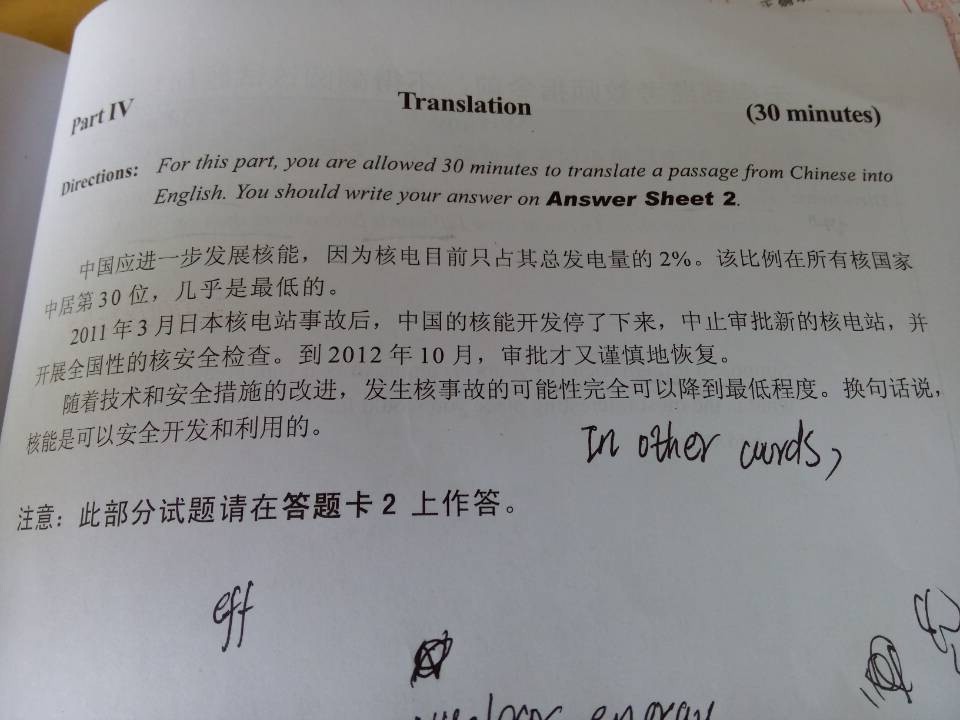 Part IV Translation (30 minutes)
Directions: For this part, you are allowed 30 minutes to translate a passage from Chinese into
English. You should write your answer on Answer Sheet 2.
中国应进一步发展核能，因为核电目前只占其总发电量的 2%。该比例在所有核国家
中居第 30 位，几乎是最低的。
2011 年 3 月日本核电站事故后，中国的核能开发停了下来，中止审批新的核电站，并
开展全国性的核安全检查。到 2012 年 10 月，审批才又谨慎地恢复。
随着技术和安全措施的改进，发生核事故的可能性完全可以降到最低程度。换句话说，
核能是可以安全开发和利用的。
In other words,
注意：此部分试题请在答题卡 2 上作答。
eff